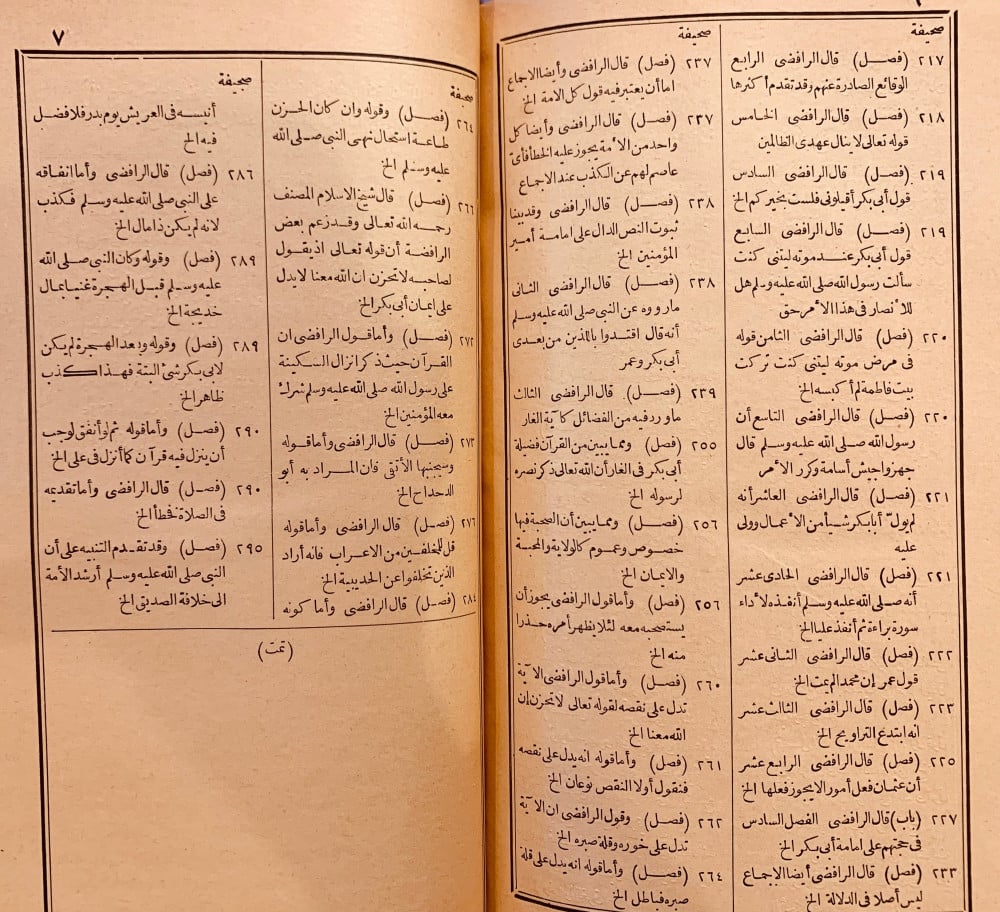 صحيفة
٢١٧ (فصـــل) قال الرافضى الرابع
الوقائع الصادرة عنهم وقد تقدم أكثرها
٢١٨ (فصـل) قال الرافضى الخامس
قوله تعالى لا ينال عهدى الظالمين
٢١٩ (فصـل) قال الرافضى السادس
قول أبى بكر أقيلونى فلست بخيركم الخ
٢١٩ (فصـــل) قال الرافضى السابع
قول أبى بكر عند موته ليتنى كنت
سألت رسول الله صلى الله عليه وسلم هل
للأنصار فى هذا الأمر حق
٢٢٠ (فصـل) قال الرافضى الثامن قوله
فى مرض موته ليتنى كنت تركت
بيت فاطمة لم أكبسه الخ
٢٢٠ (فصـل) قال الرافضى التاسع أن
رسول الله صلى الله عليه وسلم قال
جهزوا جيش أسامة وكرر الأمر
٢٢١ (فصل) قال الرافضى العاشر أنه
لم يولّ أبا بكر شيأ من الأعمال وولى
عليه
٢٢١ (فصل) قال الرافضى الحادى عشر
أنه صلى الله عليه وسلم أنفذه لأداء
سورة براءة ثم أنفذ عليا الخ
٢٢٢ (فصل) قال الرافضى الثانى عشر
قول عمر إن محمدا لم يمت الخ
٢٢٣ (فصل) قال الرافضى الثالث عشر
انه ابتدع التراويح الخ
٢٢٥ (فصل) قال الرافضى الرابع عشر
أن عثمان فعل أمورا لا يجوز فعلها الخ
٢٢٧ (باب) قال الرافضى الفصل السادس
فى حججهم على امامة أبى بكر الخ
٢٣٣ (فصل) قال الرافضى أيضا الاجماع
ليس أصلا فى الدلالة الخ
صحيفة
٢٣٧ (فصل) قال الرافضى وأيضا الاجماع
اما أن يعتبر فيه قول كل الامة الخ
٢٣٧ (فصـل) قال الرافضى وأيضا كل
واحد من الأمة يجوز عليه الخطأ فأىّ
عاصم لهم عن الكذب عند الاجماع
٢٣٨ (فصـــل) قال الرافضى وقد بينا
ثبوت النص الدال على امامة أمير
المؤمنين الخ
٢٣٨ (فصــل) قال الرافضى الثانى
ما رووه عن النبى صلى الله عليه وسلم
أنه قال اقتدوا باللذين من بعدى
أبى بكر وعمر
٢٣٩ (فصـل) قال الرافضى الثالث
ما ورد فيه من الفضائل كآية الغار
٢٥٥ (فصل) ومما يبين من القرآن فضيلة
أبى بكر فى الغار أن الله تعالى ذكر نصره
لرسوله الخ
٢٥٦ (فصــل) ومما يبين أن الصحبة فيها
خصوص وعموم كالولاية والمحبة
والايمان الخ
٢٥٦ (فصل) وأما قول الرافضى يجوز أن
يستصحبه معه لئلا يظهر أمره حذرا
منه الخ
٢٦٠ (فصـل) وأما قول الرافضى الآية
تدل على نقصه لقوله تعالى لا تحزن إن
الله معنا الخ
٢٦١ (فصل) وأما قوله انه يدل على نقصه
فنقول أولا النقص نوعان الخ
٢٦٢ (فصـل) وقول الرافضى ان الآية
تدل على خوره وقلة صبره الخ
٢٦٤ (فصـل) وأما قوله انه يدل على قلة
صبره فباطل الخ
٧
صحيفة
٢٦٤ (فصـل) وقوله وان كان الحزن
طاعة استحال نهى النبى صلى الله
عليه وسلم الخ
٢٦٦ (فصـل) قال شيخ الاسلام المصنف
رحمه الله تعالى وقد زعم بعض
الرافضة أن قوله تعالى اذ يقول
لصاحبه لا تحزن ان الله معنا لا يدل
على ايمان أبى بكر الخ
٢٧٢ (فصـل) وأما قول الرافضى ان
القرآن حيث ذكر انزال السكينة
على رسول الله صلى الله عليه وسلم شرك
معه المؤمنين الخ
٢٧٣ (فصل) قال الرافضى وأما قوله
وسيجنبها الأتقى فان المراد به أبو
الدحداح الخ
٢٧٦ (فصـل) قال الرافضى وأما قوله
قل للمخلفين من الاعراب فانه أراد
الذين تخلفوا عن الحديبية الخ
٢٨٤ (فصل) قال الرافضى وأما كونه
صحيفة
أنيسه فى العريش يوم بدر فلا فضل
فيه الخ
٢٨٦ (فصل) قال الرافضى وأما انفاقه
على النبى صلى الله عليه وسلم فكذب
لانه لم يكن ذا مال الخ
٢٨٩ (فصل) وقوله وكان النبى صلى الله
عليه وسلم قبل الهجرة غنيا بمال
خديجة الخ
٢٨٩ (فصل) وقوله وبعد الهجرة لم يكن
لابى بكر شئ البتة فهذا كذب
ظاهر الخ
٢٩٠ (فصل) وأما قوله ثم لو أنفق لوجب
أن ينزل فيه قرآن كما أنزل فى على الخ
٢٩٠ (فصل) قال الرافضى وأما تقديمه
فى الصلاة فخطأ الخ
٢٩٥ (فصل) وقد تقدم التنبيه على أن
النبى صلى الله عليه وسلم أرشد الأمة
الى خلافة الصديق الخ
(تمت)